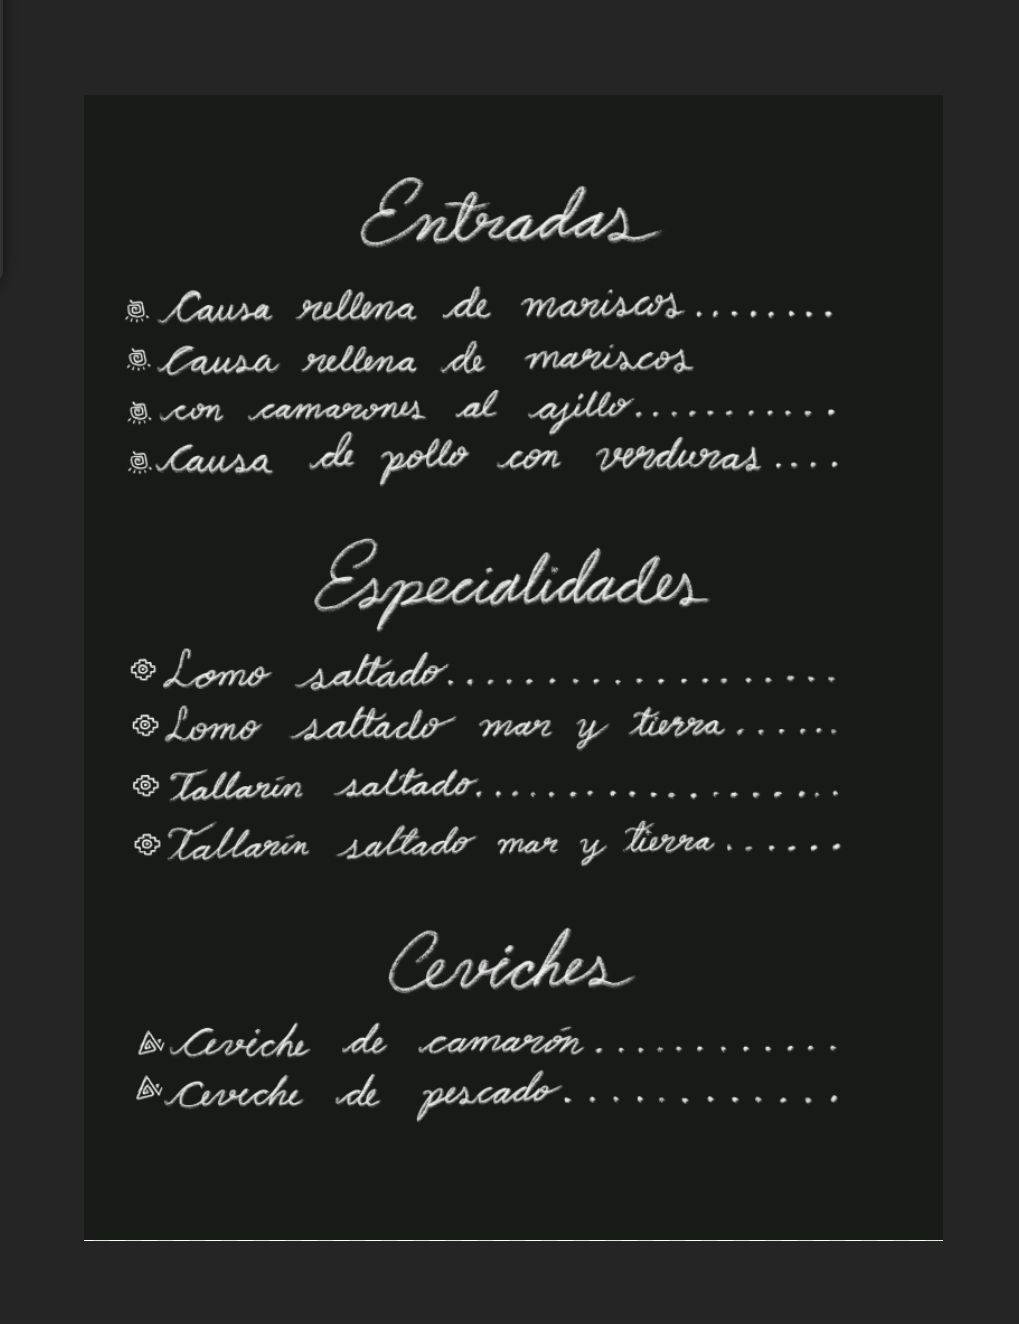 Entradas
Causa rellena de mariscos........
Causa rellena de mariscos
con camarones al ajillo...........
Causa de pollo con verduras....
Especialidades
Lomo saltado...................
Lomo saltado mar y tierra......
Tallarín saltado...................
Tallarín saltado mar y tierra......
Ceviches
Ceviche de camarón............
Ceviche de pescado............